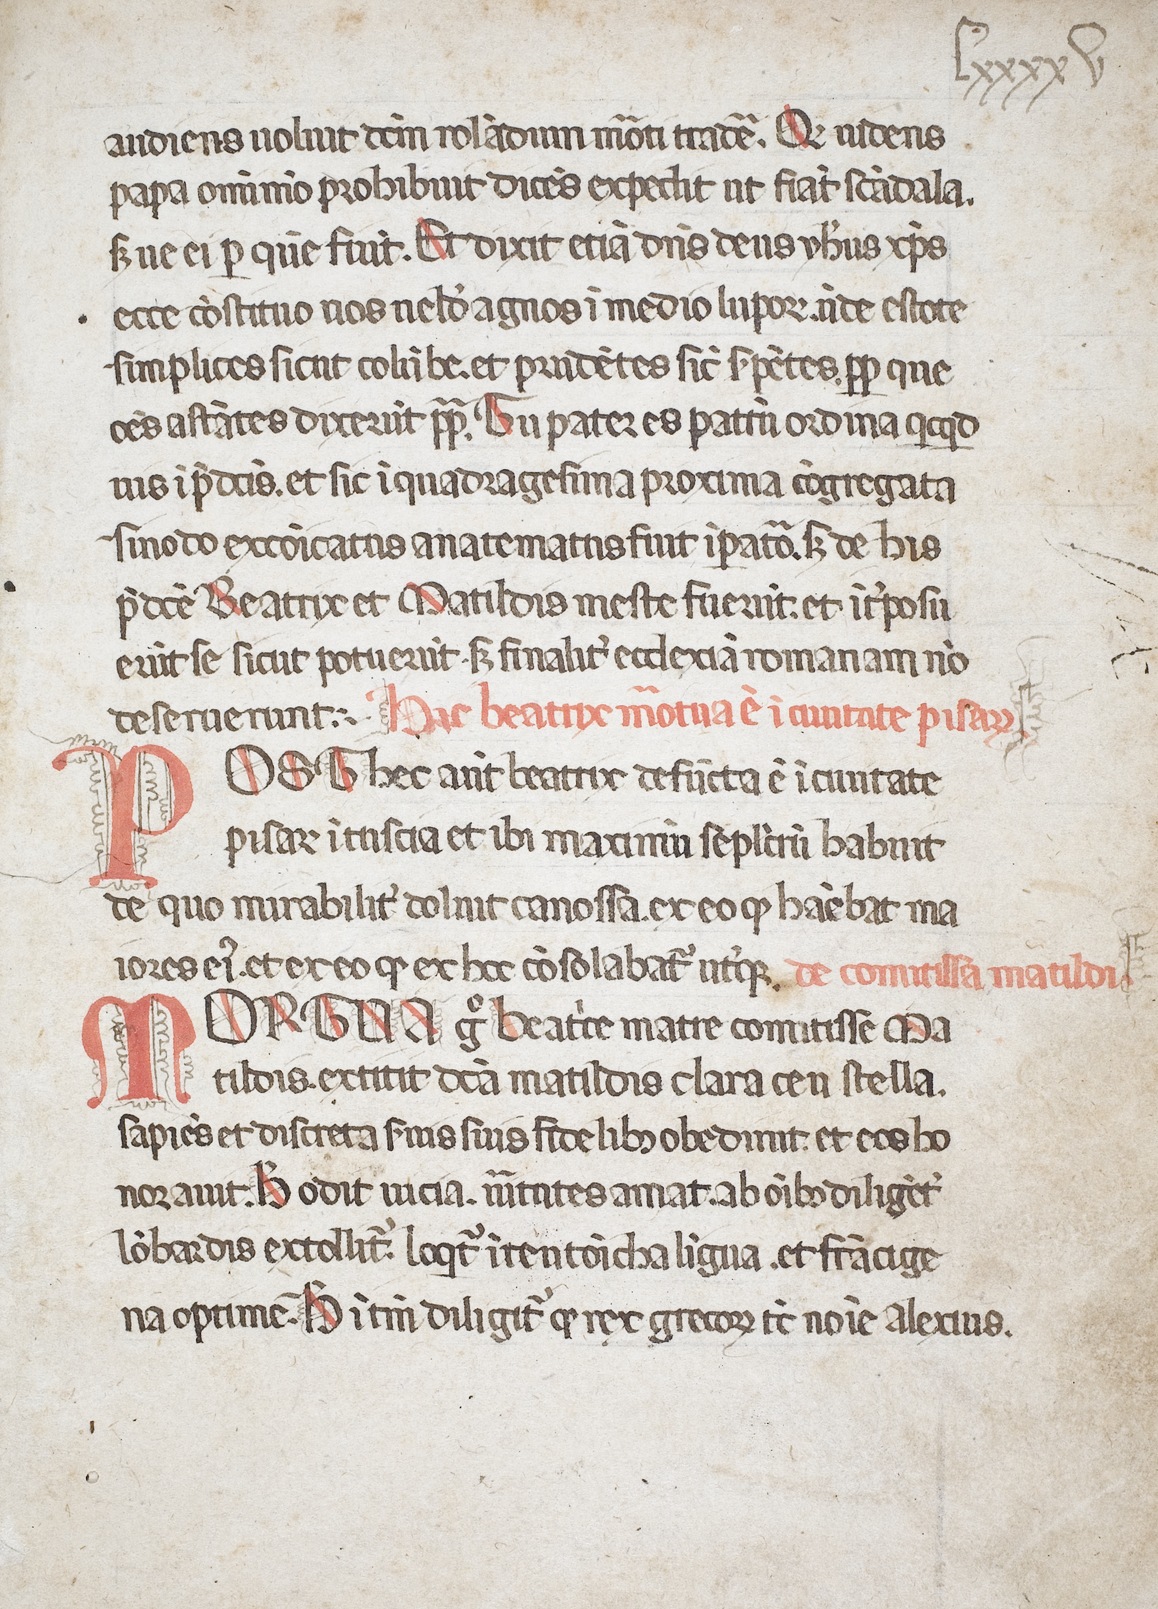 Lxxxxv
audiens uoluit dcm̄ rolādum mōti tradē. Qr uidens
papa omnino prohibuit dicēs expedit ut fiāt scādala.
sꝫ ue ei ꝑ quē fiūt. Et dixit etiā dn̄s deus yhus xp̄s
ecce cōstituo uos uelđ agnos ī medio lupoꝝ. ūde estote
simplices sicut colūbe. et prudētes sic̄ sꝑētes. ꝓꝑ que
oēs astātes dixerūt ꝑꝑ. Tu pater es patrū ordina qcqd
uis ī p̄dcīs. et sic ī quadragesima proxima cōgregata
sinodo excōicatus anatematus fuit īꝑatō. sꝫ de his
p̄dcē Beatrix et Matildis meste fuerūt. et īt̓posu
erūt se sicut potuerūt. sꝫ finalit̓ ecclexiā romanam nō
deseruerunt. Hic beatrix mōtua ē ī ciuitate pisaꝝ
POST hec aūt beatrix defūcta ē ī ciuitate
pisaꝝ ī tuscia et ibi maximū seplcrū habuit
de quo mirabilit̓ doluit canossa. ex eo qꝫ habēbat ma
iores eī. et ex eo qꝫ ex hoc cōsolabat̓ ut̓qꝫ. de comitissa matildi.
MORTUA gͦ beatrice matre comitisse Ma
tildis. extitit dcā matildis clara ceu stella.
sapiēs et discreta suis suis fidelibꝫ obediuit. et eos ho
norauit. H odit uicia. ūtutes amat. ab oībꝫ diligēt̓
lōbardis extollit̓. loqt̓ ī teutōicha līgua. et frācige
na optime. H ītm̄ diligit̓ qꝫ rex grecoꝝ tc̄ noīe Alexius.